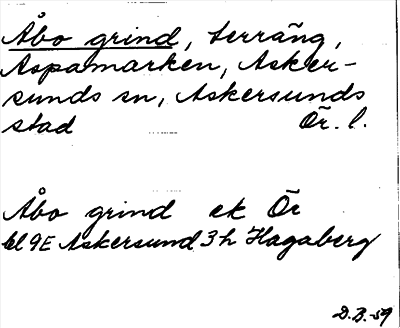 Åbo grind, terräng,
Aspamarken, Asker-
sunds sn, Askersunds
stad Ör. l.
Åbo grind ek Ör
bl 9E Askersund 3h Hagaberg
D.B.-59